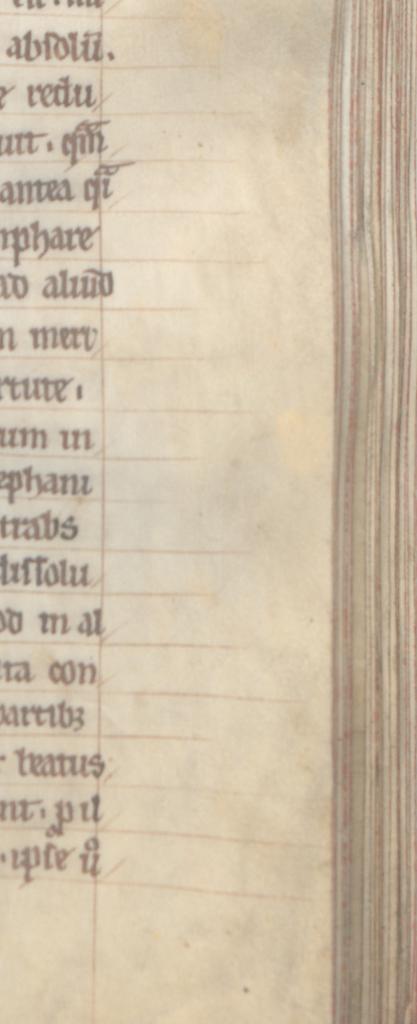 absolū.
redu
. qm̄
antea qī
mphare
ad aliud
m meru
rtute.
um in
ephani
trabs
dissolu
od in al
ita con
partibꝫ
beatus
nt. p il
. ipse ů